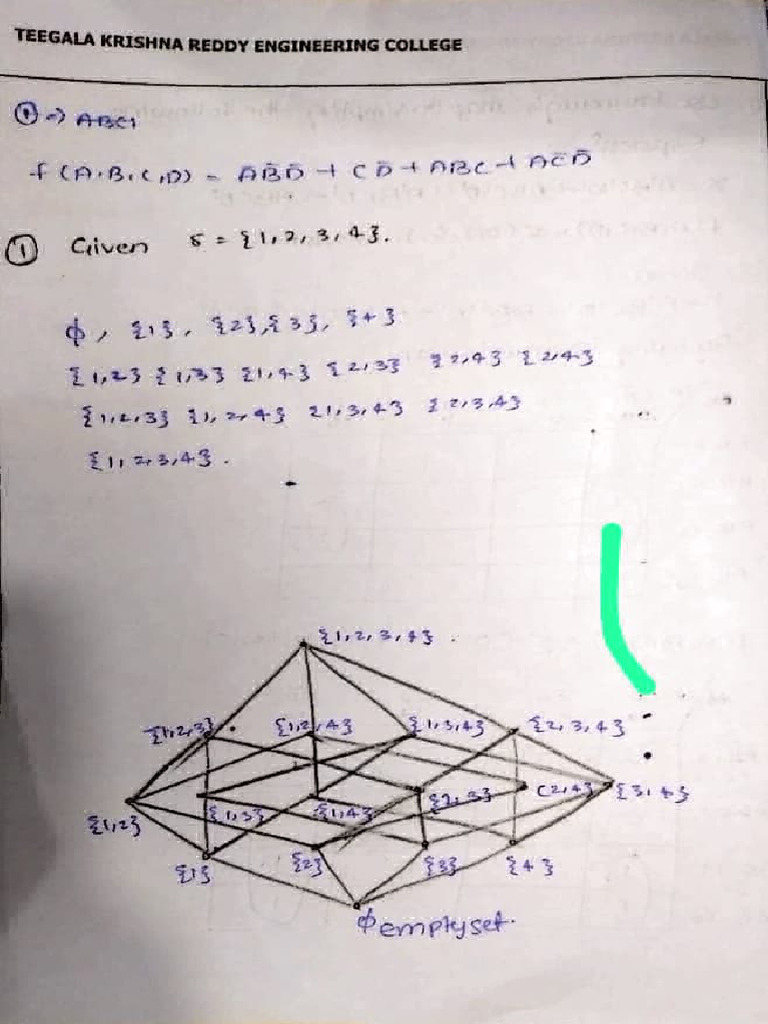 TEEGALA KRISHNA REDDY ENGINEERING COLLEGE
④ => ABCI
f(A,B,C,D) = ĀB̄D̄ + CD̄ + ABC + AC̄D̄
① Given S = {1,2,3,4}.
ϕ, {1}, {2}, {3}, {4}
{1,2} {1,3} {1,4} {2,3} {2,4} {2,4}
{1,2,3} {1,2,4} {1,3,4} {2,3,4}
{1,2,3,4}.
{1,2,3,4}.
{1,2,3} {1,2,4} {1,3,4} {2,3,4}
{1,2} {1,3} {1,4} {2,3} {2,4} {3,4}
{1} {2} {3} {4}
ϕ emptyset.